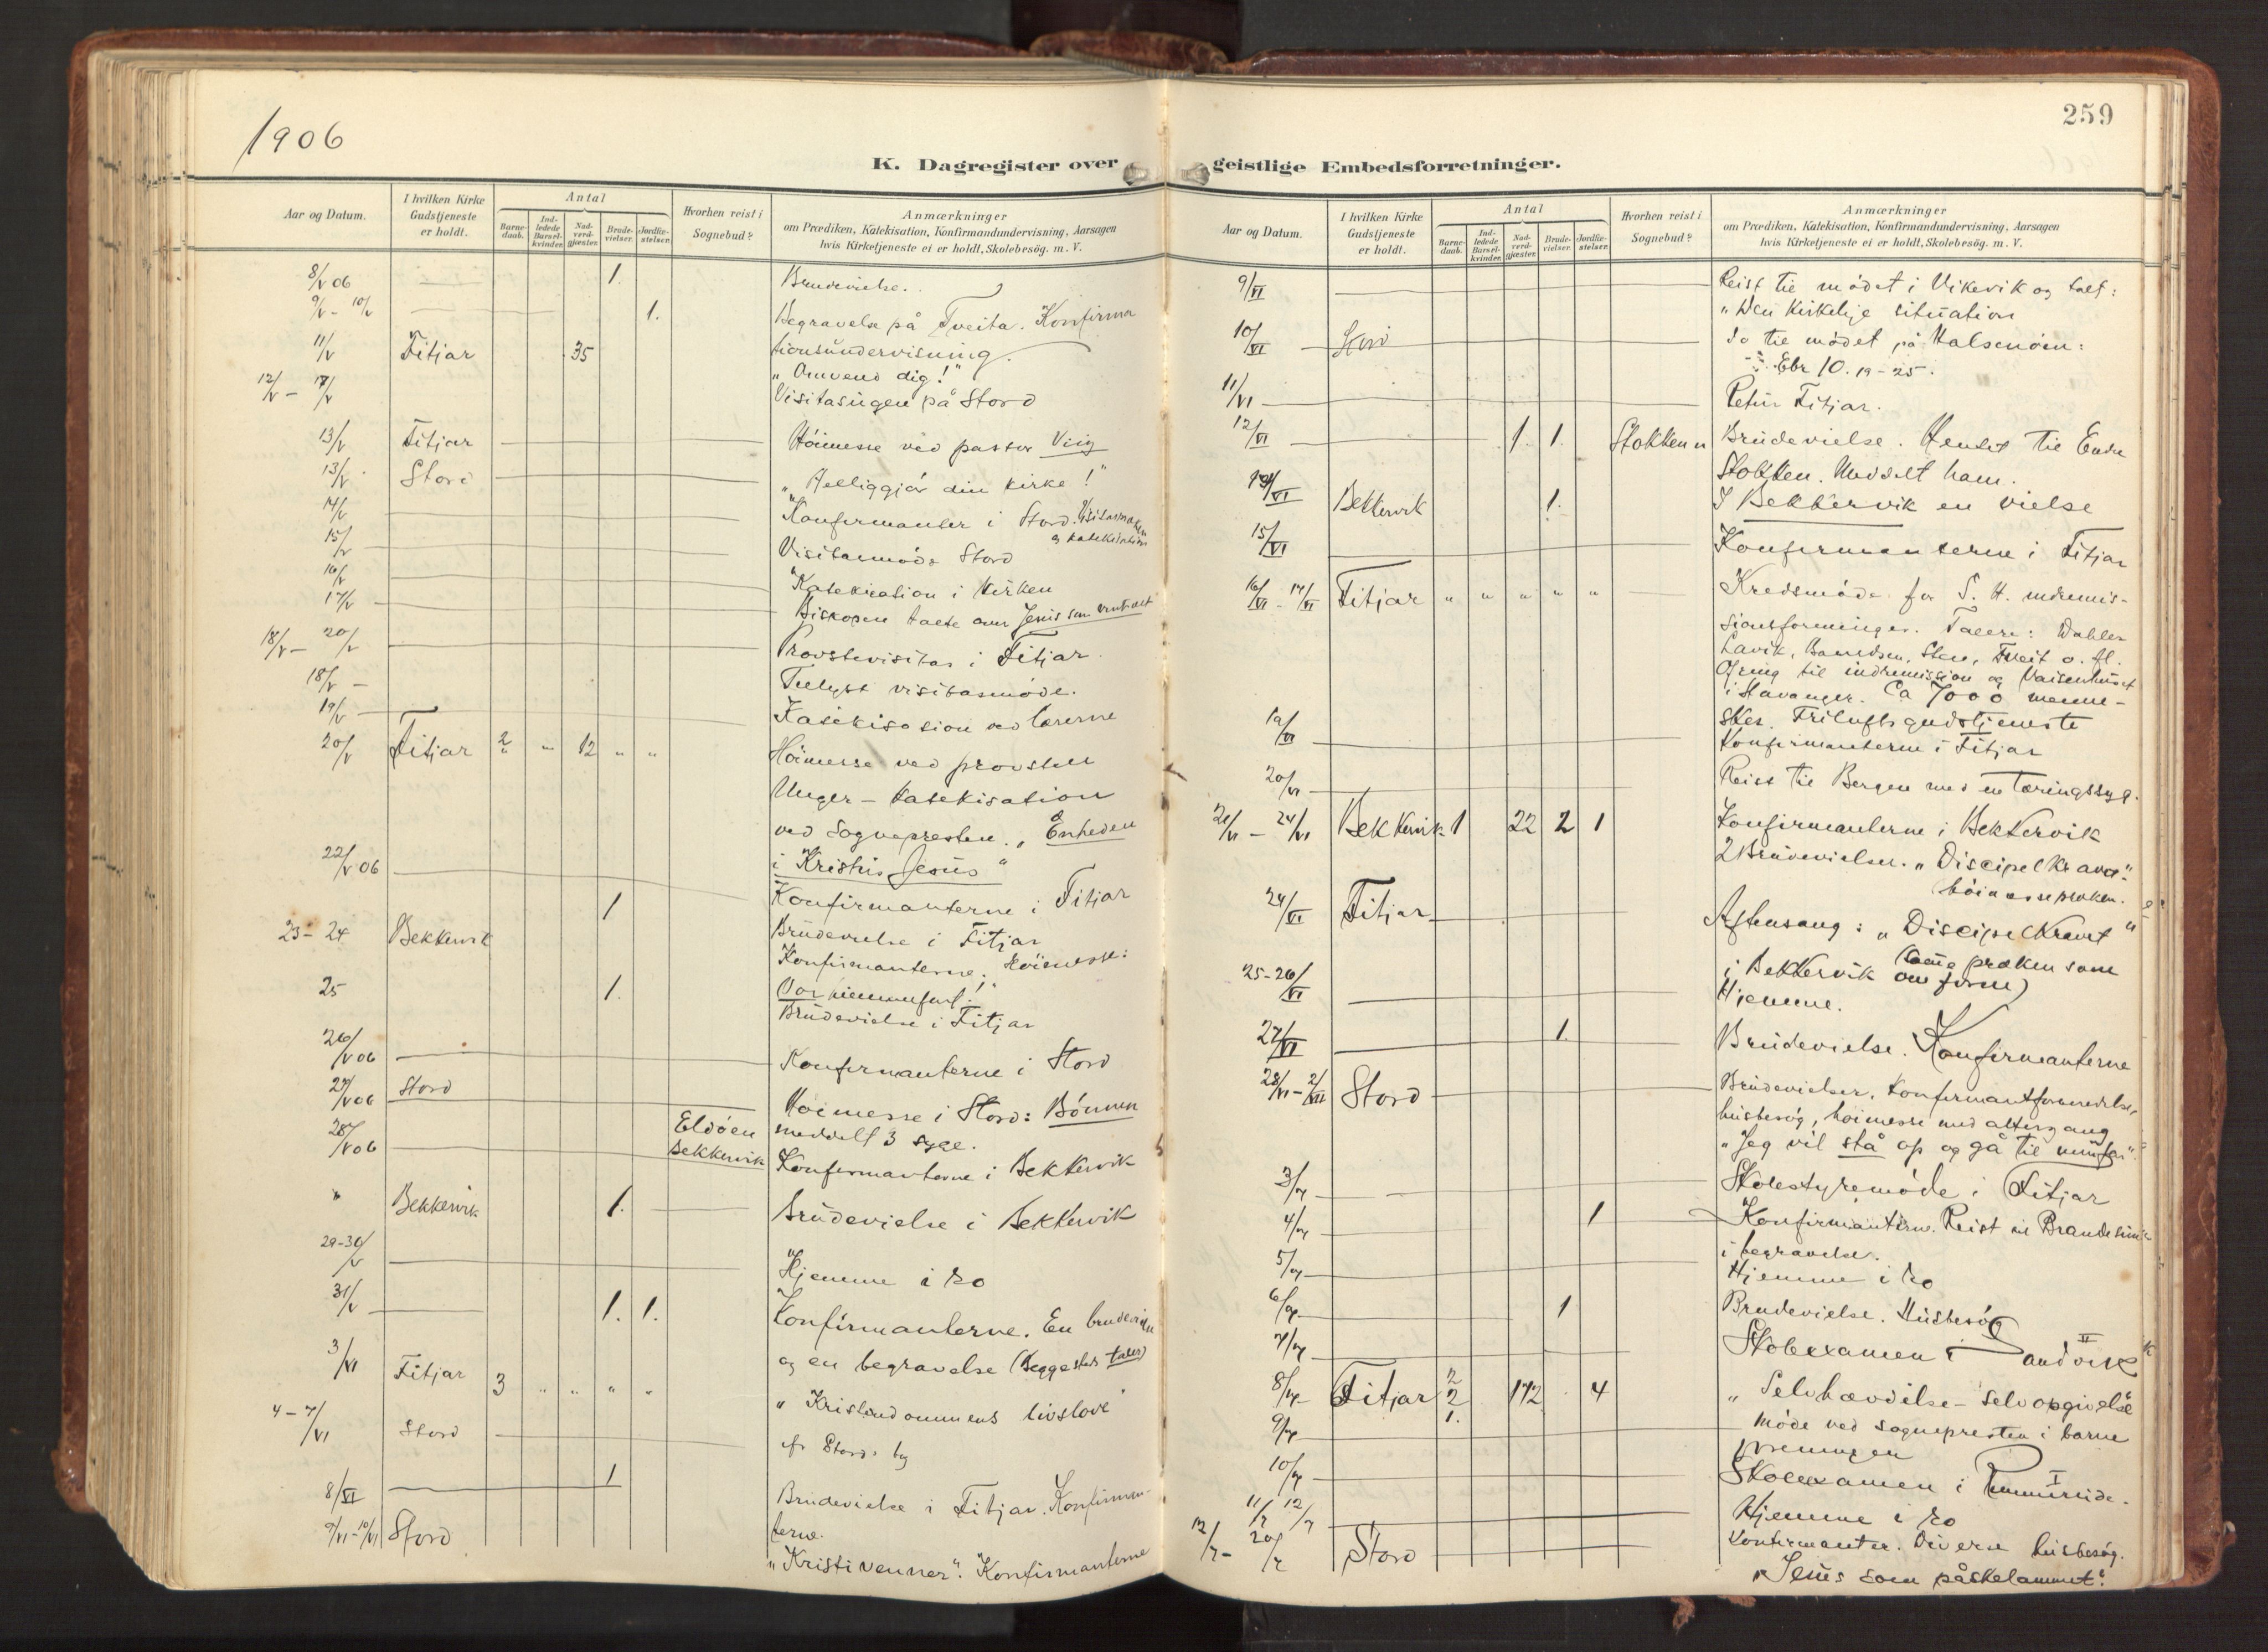 1906
K. Dagregister over
Aar og Datum.
I hvilken Kirke Gudstjeneste er holdt.
Antal
Barnedaab.
Indledede Barselkvinder.
Nadverdgjæster.
Brudevielser.
Jordfæstelser.
Hvorhen reist i Sognebud?
Anmærkninger
om Prædiken, Katekisation, Konfirmandundervisning, Aarsagen
hvis Kirketjeneste ei er holdt, Skolebesög. m. V.
8/V 06 1. Brudevielse.
9/V - 10/V 1. Begravelse på Tveita. Konfirma
11/V Fitjar 35 tionsundervisning.
„Omvend dig!"
12/V - Visitasugen på Stord
13/V Fitjar Höimesse ved pastor
13/V Stord „Helliggjör din kirke!"
14/V Konfirmanter i Stord.
og katekisation
15/V Visitasmöde Stord
16/V Katekisation i Kirken
17/V Biskopen talte over Jesus som
18/V - 20/V Provstevisitas i Fitjar.
18/V Tillyst visitasmöde.
19/V Katekisasion ved lærerne
20/V Fitjar 2 „ 12 „ „ Höimesse ved provsten
Unger - Katekisation
ved Sognepresten. „Enheden
i Kristus Jesus"
22/V 06 Konfirmanterne i Fitjar
1 Brudevielse i Fitjar
23 - 24 Bekkervik Konfirmanterne. Höimesse:
25 1. Brudevielse i Fitjar
26/V 06 Konfirmanterne i Stord
27/V 06 Stord Höimesse i Stord: Bönnen
28/V 06 Eldöen meddelt 3 syge.
Bekkervik Konfirmanterne i Bekkervik
" Bekkervik 1. Brudevielse i Bekkervik
29-30/V Hjemme i ro
31/V 1. 1. Konfirmanterne. En brudevielse
og en begravelse (Beggesteds taler)
3/VI Fitjar 3 „ „ „ „ „Kristendommens livslove"
4 - 7/VI Stord
8/VI 1 Brudevielse i Fitjar. Konfirman-
terne.
9/VI-10/VI Stord „Kristi venner". Konfirmanterne
259
geistlige Embedsforretninger.
Aar og Datum.
I hvilken Kirke Gudstjeneste er holdt.
Antal
Barnedaab.
Indledede Barselkvinder.
Nadverdgjæster.
Brudevielser.
Jordfæstelser.
Hvorhen reist i Sognebud?
Anmærkninger
om Prædiken, Katekisation, Konfirmandundervisning, Aarsagen
hvis Kirketjeneste ei er holdt, Skolebesög. m. V.
9/VI Reist til mödet i Vikevik og talt:
„Den Kirkelige situation
10/VI Stord til mödet på Halsenöen:
Ebr 10. 19-25.
11/VI Retur Fitjar.
12/VI 1. 1. Stokken Brudevielse. Hentet til Endre
Stokken. Meddelt ham.
Bekkervik 1. I Bekkervik en vielse
15/VI Konfirmanterne i Fitjar
16/VI - 17/VI Fitjar „ „ „ „ „ Kredsmöde for S. H. indremis-
sionsforeninger. Talere: Dahle
Lavik, Tveit o. fl.
Ofring til indremission og Vaisenhuset
i Stavanger. Ca 7000 menne-
sker. Friluftsgudstjeneste
19/VI Konfirmanterne i Fitjar
20/VI Reist til Bergen med en tæringssyg.
21/VI - 24/VI Bekkervik 1 22 2 1 Konfirmanterne i Bekkervik
2 Brudevielser. „Discipelkravet".
24/VI Fitjar Aftensang: „Discipelkravet"
(samme præken som
i Bekkervik om form)
25-26/VI Hjemme.
27/VI 1. Brudevielse. Konfirmanterne
28/VI - 2/VII Stord Brudevielser. Konfirmantforberedelse,
husbesög, höimesse med altergang
„Jeg vil stå op og gå til min far".
3/7 Skolestyremöde i Fitjar
4/7 1 Konfirmanterne. Reist til Brandesund
i begravelse.
5/7 Hjemme i ro
6/7 1 Brudevielse. Husbesög
7/7 Skoleexamen i Sandvik II
8/7 Fitjar 2/2 172 4 „Selvhævdelse - Selvopgivelse"
9/7 1. Möde ved sognepresten i barne
foreningen
10/7 Skoleexamen i Rimmereide I.
11/7 12/7 Hjemme i ro
12/7 - 20/7 Stord Konfirmanter. Diverse husbesög.
„Jesus som påskelammet".